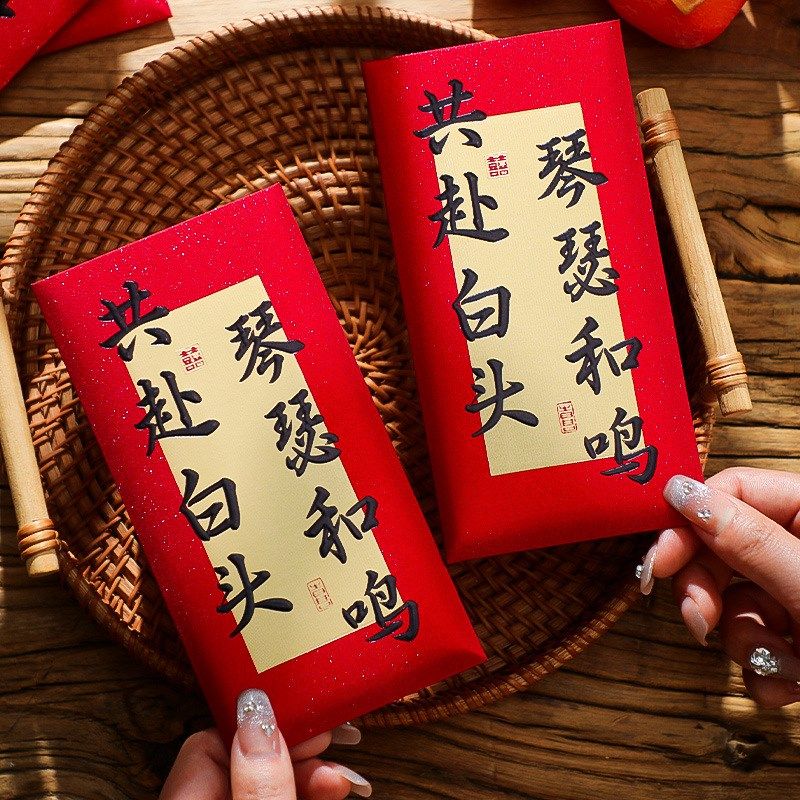 琴瑟和鸣
共赴白头
囍
琴瑟和鸣
共赴白头
囍